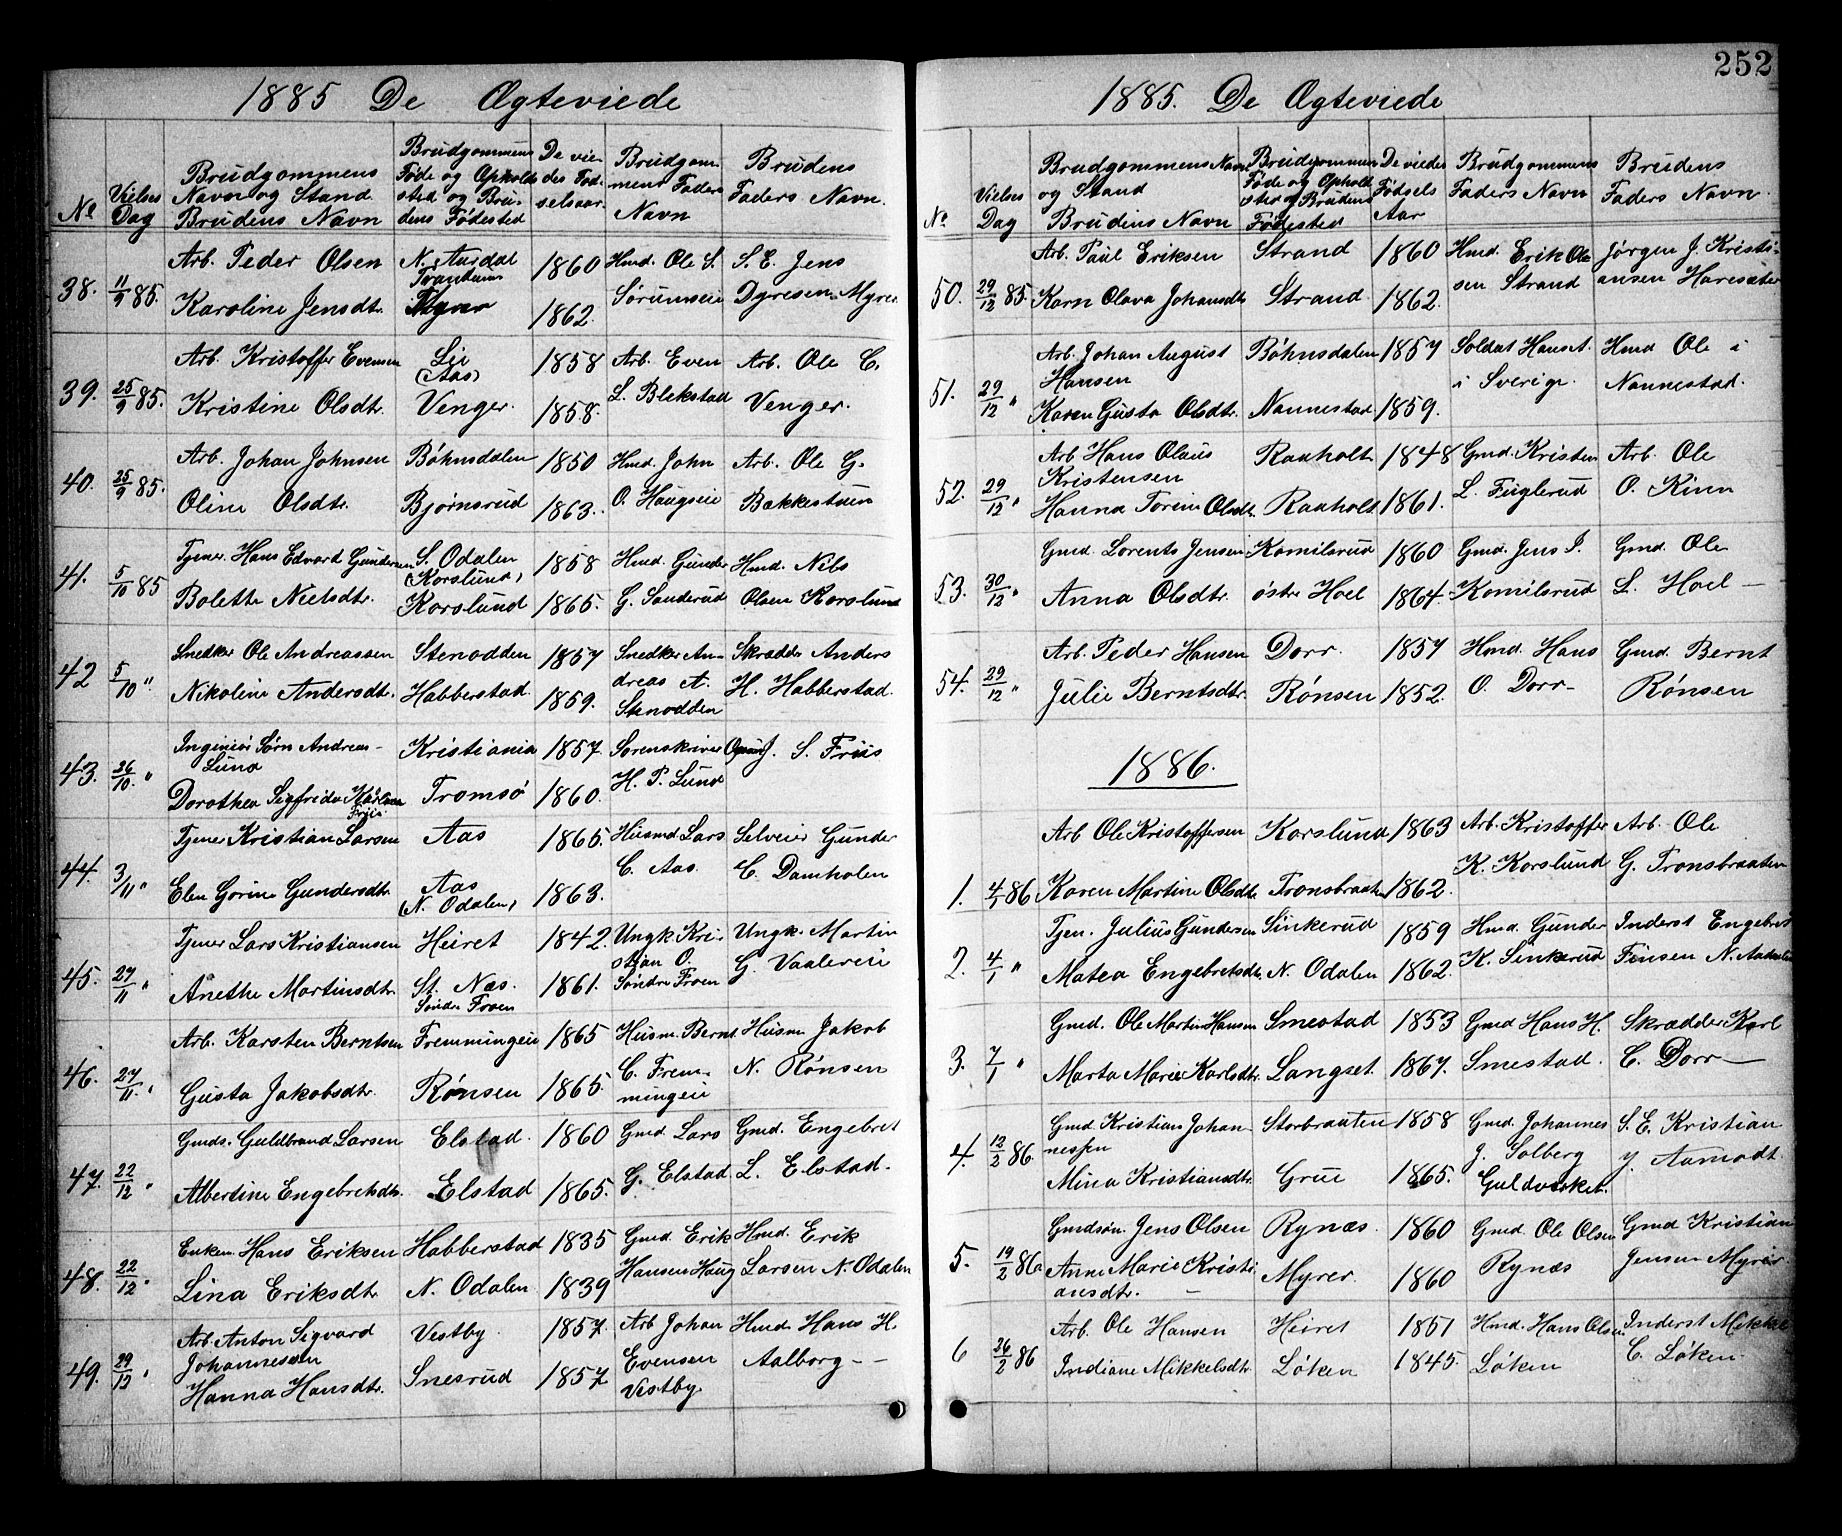 252
1885 De Ægteviede
№
Vielses Dag
Brudgommens Navn og Stand Brudens Navn
Brudgommens Føde og Opholds sted og Bru- dens Fødested
De vie- des Fød- selsaar.
Brudgom- mens Faders Navn
Brudens Faders Navn.
38. 11/9 85. Arb. Peder Olsen N. Aurdal 1860 Hmd. Ole S. S. E. Jens
Karoline Jensdtr. 1862. Sørumseie Dyresen Myrer
39. 25/9 85. Arb. Kristoffer Evensen Lie (Aas) 1858 Arb. Even Arb. Ole C.
Kristine Olsdtr. Venger. 1858. L. Blekstad Venger.
40. 25/9 85. Arb. Johan Johnsen Bøhnsdalen 1850 Hmd. John Arb. Ole G.
Oline Olsdtr. Bjørnsrud 1863. O. Haugseie Bakkestuen
41. 5/10 85 Tjener. Hans Edvard Gundersen S. Odalen (Korslund) 1858 Hmd. Gunder Hmd. Nils
Bolette Nielsdtr. Korslund 1865. G. Sanderud Olsen Korslund
42 5/10 " Snedker Ole Andreassen Stenodden 1857 Snedker An- Skrædder Anders
Nikoline Andersdt. Habberstad 1859. dreas A. H. Habberstad.
Stenodden
43. 26/10. " Ingeniør Sørn Andreas Kristiania 1857. Sorenskriver J. S. Friis
Lund H. P. Lund
Dorothea Sigfride Friis Tromsø 1860.
44. 3/11 " Tjener Kristian Larsen Aas 1865. Husmd. Lars Selveier Gunder
C. Aas. C. Damholen
Elen Gorine Gundersdtr Aas (N. Odalen) 1863.
45. 27/11 " Tjener Lars Kristiansen Heiret 1842. Ungk. Kri- Ungk. Martin
stian O. G. Vaalereie
Anethe Martinsdtr. St. Næs. 1861. Søndre Froen
Søndre Froen
46. 27/11. " Arb. Karsten Berntsen Fremmingeie 1865 Husm. Bernt Husm Jakob
C. Frem- N. Rønsen
Gusta Jakobsdtr. Rønsen 1865. mingeie
47. 22/12 " Gmds. Guldbrand Larsen Elstad. 1860 Gmd. Lars Gmd. Engebret
Albertine Engebretsdtr. Elstad 1865. G. Elstad L. Elstad.
48. 22/12 " Enkem. Hans Eriksen Habberstad 1835 Gmd. Erik Hmd. Erik
Lina Eriksdtr. N. Odalen 1839 Hansen Haug Larsen N. Odalen
49. 29/12 " Arb. Anton Sigvard Vestby. 1857. Arb. Johan Hmd. Hans H.
Johannessen Evensen Aalborg - -
Hanna Hansdtr. Snesrud 1857 Vestby.
1885. De Ægteviede
№
Vielses Dag
Brudgommens Navn og Stand Brudens Navn
Brudgommens Føde og Ophold sted og Brudens Fødested
De viedes Fødsels Aar
Brudgommens Faders Navn
Brudens Faders Navn.
50. 29/12 85. Arb. Paul Eriksen Strand 1860 Hmd. Erik Ole Jørgen J. Kristi-
Karn Olava Johansdt. Strand 1862. sen Strand ansen Haresæter
51. 29/12 " Arb. Johan August Bøhnsdalen 1857 Soldat Hans A. Hmd Ole i
Hansen i Sverige. Nannestad.
Karen Gusta Olsdtr. Nannestad 1859.
52. 29/12 " Arb Hans Olaus Raaholt 1848 Gmd. Kristen Arb. Ole
Kristensen L. Fuglerud O. Kinn
Hanna Torine Olsdtr. Raaholt 1861.
53. 30/12 " Gmd. Lorents Jensen Komilsrud 1860 Gmd. Jens J. Gmd. Ole
Anna Olsdtr. østre Hoel 1864. Komilsrud L. Hoel —
54. 29/12 " Arb. Peder Hansen Dorr. 1857 Hmd. Hans Gmd. Bernt
Julie Berntsdtr. Rønsen 1852. O. Dorr- Rønsen
1886.
1. 4/1 86 Arb Ole Kristoffersen Korslund 1863 Arb. Kristoffer Arb. Ole
K. Korslund G. Tronsbraaten
Karen Martine Olsdtr. Tronsbraaten 1862.
2. 4/1 " Tjen. Julius Gundersen Sinkerud 1859 Hmd. Gunder Inderst Engebret
Matea Engebretsdtr. N. Odalen 1862. K. Sinkerud Finsen N.
3. 7/1 " Gmd. Ole Martin Hansen Smestad 1853 Gmd Hans H. Skrædder Karl
Marta Marie Karlsdtr. Langset. 1867. Smestad. C. Dorr —
4. 12/2 86. Gmd. Kristian Johan- Storbraaten 1858 Gmd. Johannes S. E. Kristian
nessen J. Solberg J. Aamodt.
Mina Kristiansdtr. Grue 1865. Guldverket.
5. 19/2 86 Gmdsøn. Jens Olsen Rynæs. 1860 Gmd. Ole Olsen Gmd Kristian
Anne Marie Kristi- Myrer. 1860 Rynæs Jensen Myrer
ansdtr. –
6 26/2 86 Arb. Ole Hansen Heiret 1851 Hmd. Hans Olsen Inderst Mikkel
Indiane Mikkelsdtr. Løken 1845. Løken C. Løken.